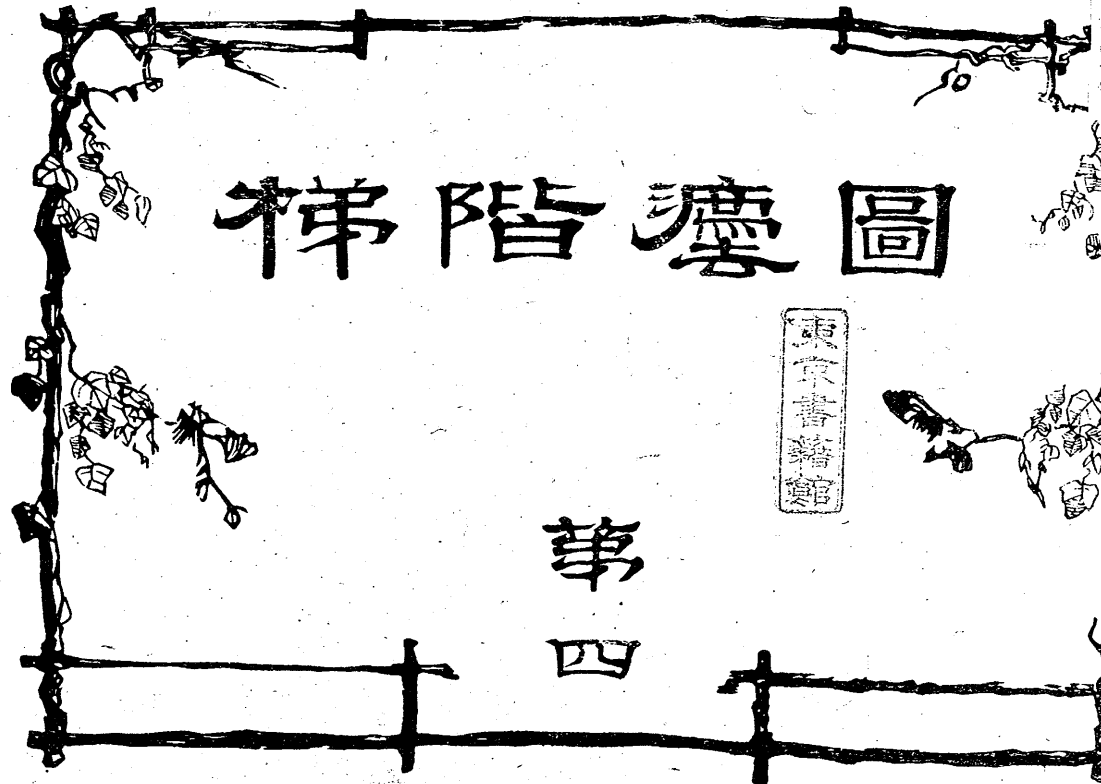 圖灋階梯
東京書籍館
第
四